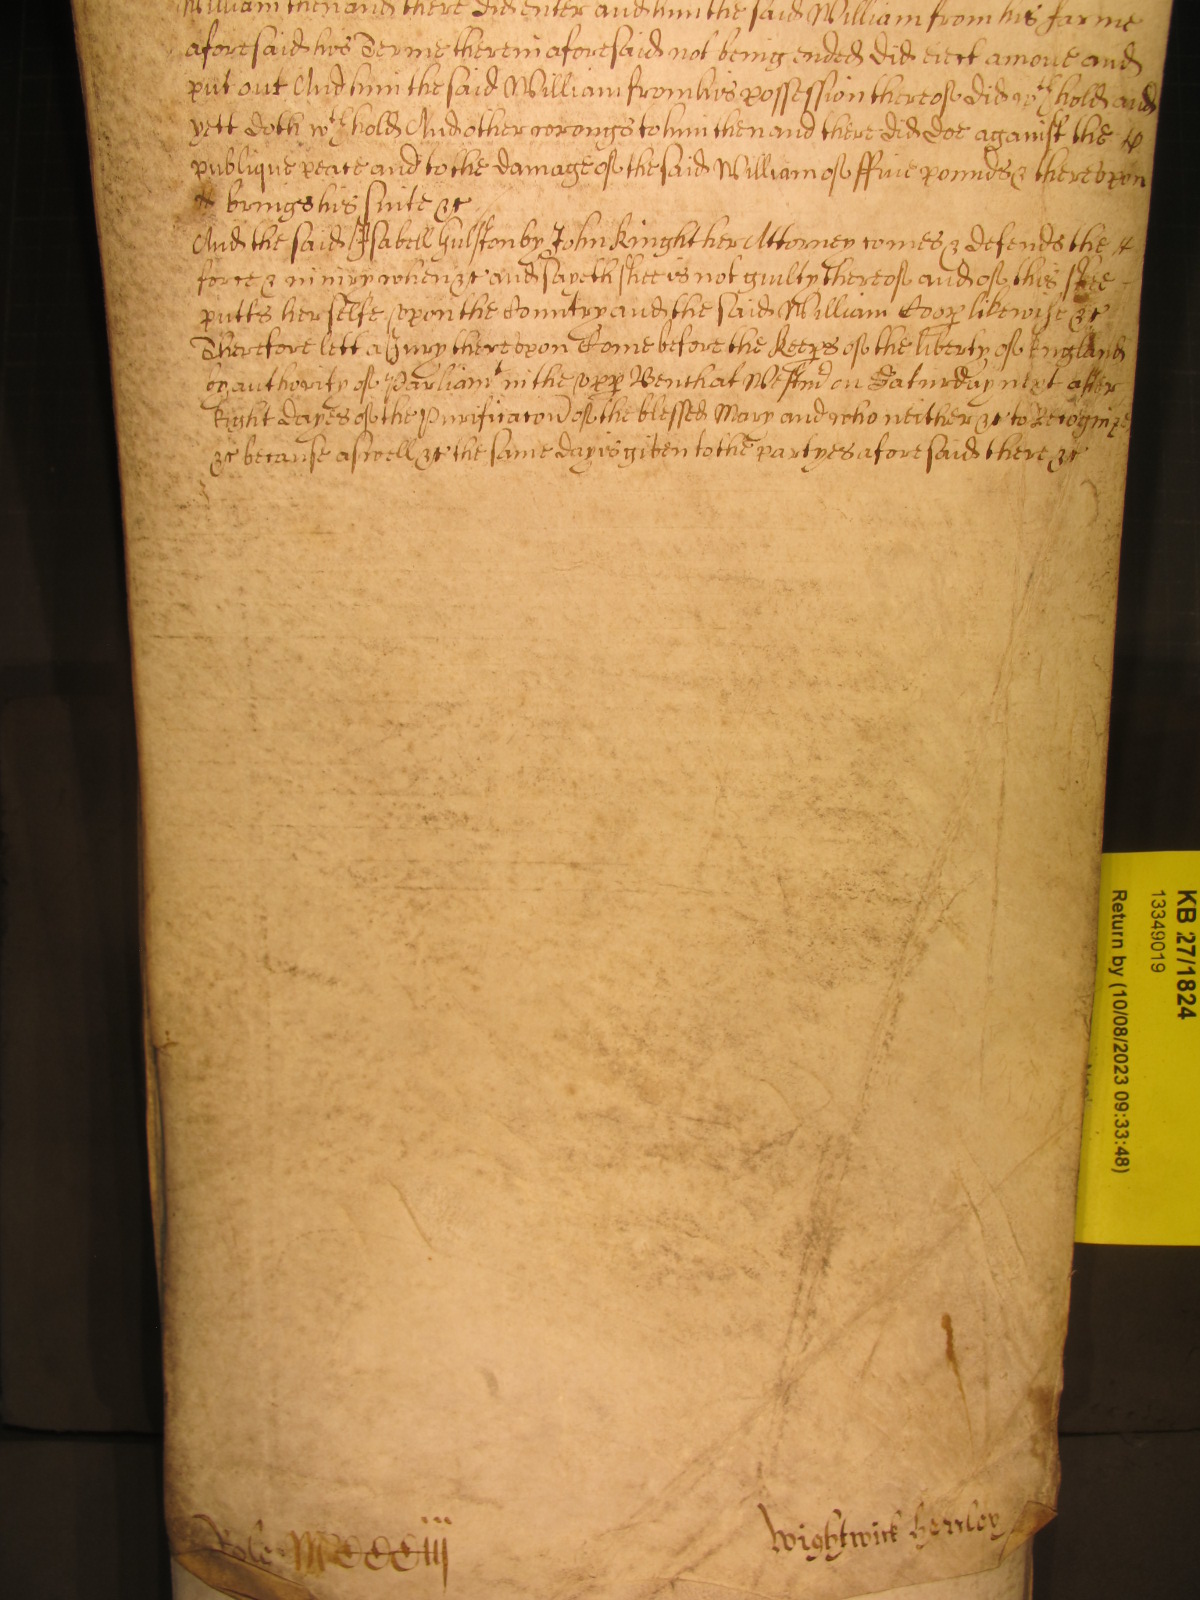 William then and there did enter and him the said William from his farme
aforesaid his Terme therein aforesaid not being ended did eiect amoue and
put out And him the said William from his possession thereof did wth hold and
yett doth wth hold And other wrongs to him then and there did doe against the
publique peace and to the damage of the said William of ffiue pounds & therevpon
brings his suite &c
And the said Isabell Hulston by John Knight her Attorney comes & defends the
force & iniury when &c And sayeth shee is not guilty thereof and of this shee
putts herselfe vpon the Countrey and the said William Coop likewise &c
Therefore lett a Jury therevpon Come before the Keeps of the liberty of England
by authority of Parliamt in the vpp Bench at Westmr on Saturday next after
Eight dayes of the Purificacon of the blessed Mary and who neither &c to Recognize
&c because aswell &c the same day is giben to the partyes aforesaid there &c
KB 27/1824
13349019
Return by (10/08/2023 09:33:48)
Role MCCCiii
Wightwick Henley